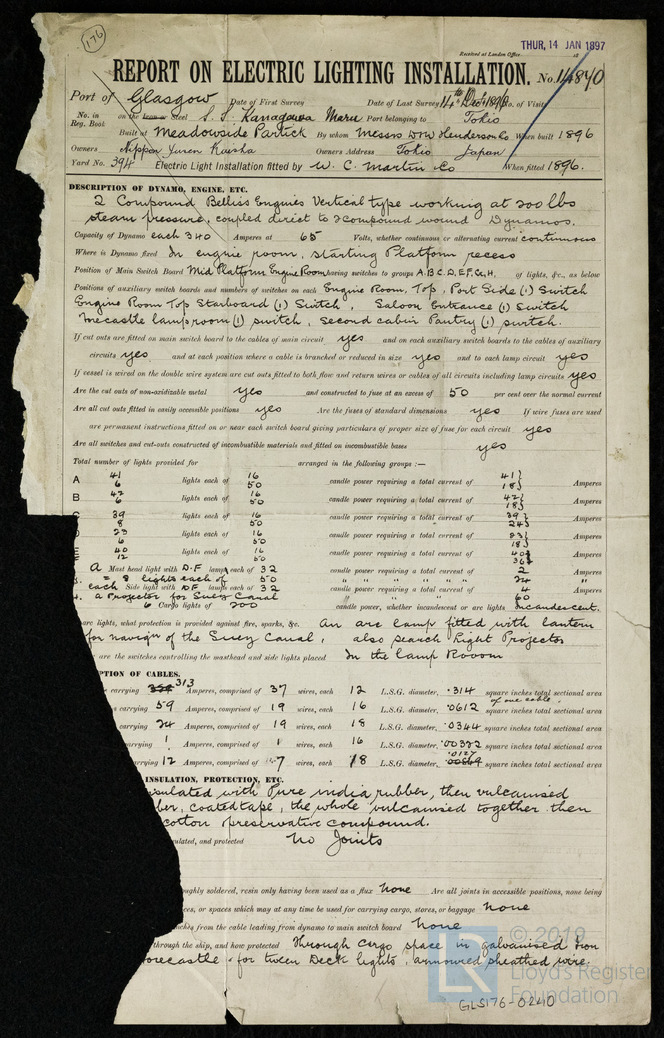 176
Received at London Office
THUR, 14 JAN 1897
REPORT ON ELECTRIC LIGHTING INSTALLATION. No. 14840
Port of Glasgow Date of First Survey Date of Last Survey 14th Decr 1896 No. of Visits
No. in Reg. Book on the Iron or Steel S.S. Kanagawa Maru Port belonging to Tokio
Built at Meadowside Partick By whom Messrs D&W Henderson & Co When built 1896
Owners Nippon Yusen Kaisha Owners Address Tokio Japan
Yard No. 394 Electric Light Installation fitted by W. C. Martin & Co When fitted 1896.
DESCRIPTION OF DYNAMO, ENGINE, ETC.
2 Compound Belliss Engines Vertical type working at 200 lbs
steam pressure, coupled direct to 2 compound wound Dynamos.
Capacity of Dynamo each 340 Amperes at 65 Volts, whether continuous or alternating current continuous
Where is Dynamo fixed In engine room, starting Platform recess
Position of Main Switch Board Mid Platform Engine Room having switches to groups A.B.C.D.E.F.G.H. of lights, &c., as below
Positions of auxiliary switch boards and numbers of switches on each Engine Room, Top, Port Side (1) Switch
Engine Room Top Starboard (1) Switch, Saloon Entrance (1) Switch
lamproom (1) switch, Second cabin Pantry (1) switch.
If cut outs are fitted on main switch board to the cables of main circuit yes and on each auxiliary switch boards to the cables of auxiliary
circuits yes and at each position where a cable is branched or reduced in size yes and to each lamp circuit yes
If vessel is wired on the double wire system are cut outs fitted to both flow and return wires or cables of all circuits including lamp circuits yes
Are the cut outs of non-oxidizable metal yes and constructed to fuse at an excess of 50 per cent over the normal current
Are all cut outs fitted in easily accessible positions yes Are the fuses of standard dimensions yes If wire fuses are used
are permanent instructions fitted on or near each switch board giving particulars of proper size of fuse for each circuit yes
Are all switches and cut-outs constructed of incombustible materials and fitted on incombustible bases yes
Total number of lights provided for arranged in the following groups :—
A 41 lights each of 16 candle power requiring a total current of 41 Amperes
6 50 18
B 42 lights each of 16 candle power requiring a total current of 42 Amperes
6 50 18
C 39 lights each of 16 candle power requiring a total current of 39 Amperes
8 50 24
D 23 lights each of 16 candle power requiring a total current of 23 Amperes
6 50 18
E 40 lights each of 16 candle power requiring a total current of 40 Amperes
12 50 36
A Mast head light with D.F lamps each of 32 candle power requiring a total current of 2 Amperes
8 lights each of 50 24
each Side light with D.F lamps each of 32 4
a Projector for Suez Canal 60
6 Cargo lights of 200 candle power, whether incandescent or arc lights Incandescent.
arc lights, what protection is provided against fire, sparks, &c. An arc lamp fitted with lantern
for navign of the Suez Canal, also search Light Projector
are the switches controlling the masthead and side lights placed In the lamp Rooom
PTION OF CABLES.
carrying 313 Amperes, comprised of 37 wires, each 12 L.S.G. diameter, .314 square inches total sectional area
of one cable.
carrying 59 Amperes, comprised of 19 wires, each 16 L.S.G. diameter, .0612 square inches total sectional area
carrying 24 Amperes, comprised of 19 wires, each 18 L.S.G. diameter, .0344 square inches total sectional area
carrying 1 Amperes, comprised of 1 wires, each 16 L.S.G. diameter, .00322 square inches total sectional area
carrying 12 Amperes, comprised of 7 wires, each 18 L.S.G. diameter, .0127 square inches total sectional area
INSULATION, PROTECTION, ETC.
sulated with Pure india rubber, then vulcanised
ber, coated tape, the whole vulcanised together then
cotton preservative compound.
ulated, and protected No Joints
oughly soldered, resin only having been used as a flux None Are all joints in accessible positions, none being
ces, or spaces which may at any time be used for carrying cargo, stores, or baggage None
nches from the cable leading from dynamo to main switch board None
through the ship, and how protected Through Cargo space in galvanised Iron
orecastle & for tween Deck lights, armoured sheathed wire.
© 2019
LR
Lloyd's Register
Foundation
GLS176-0240